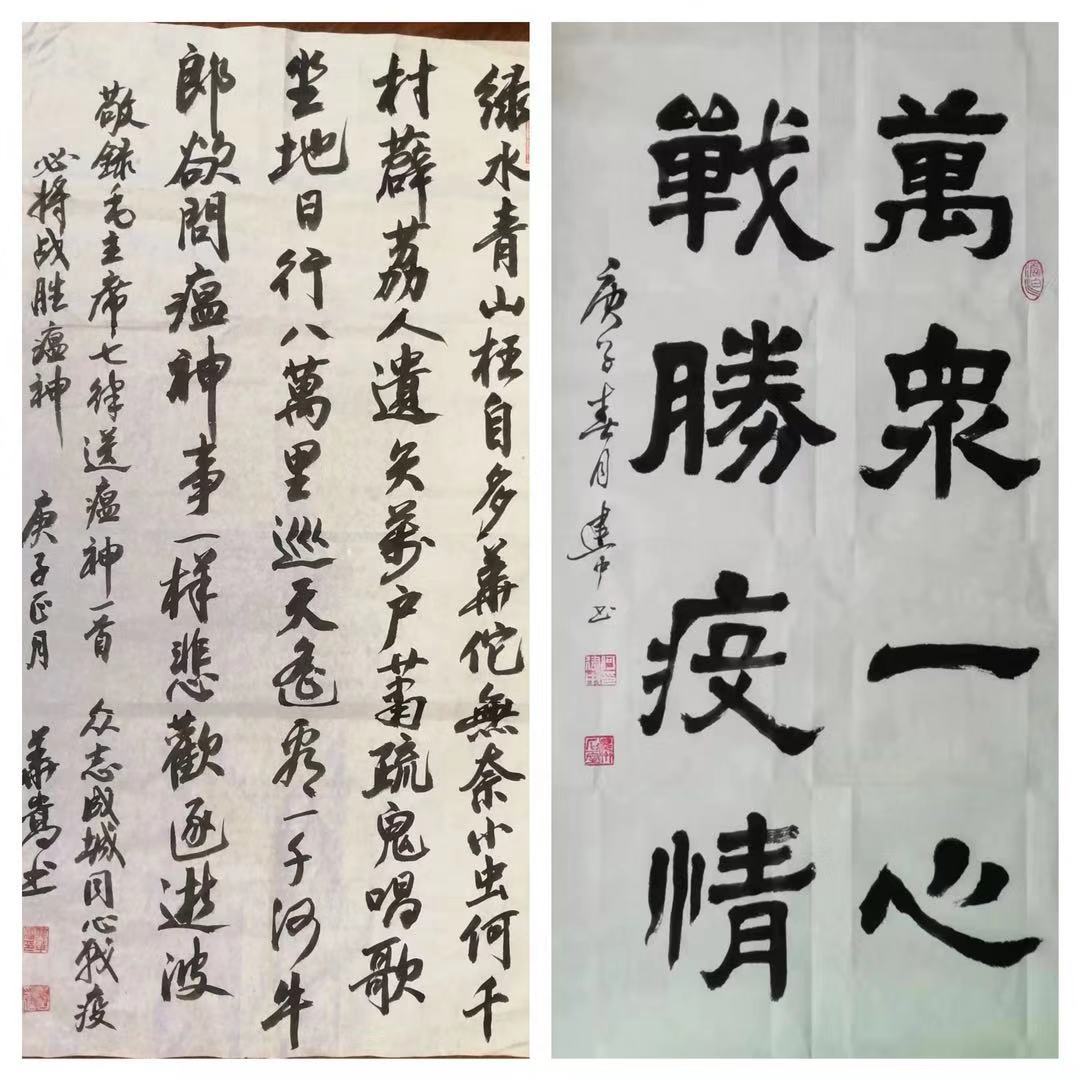 绿水青山枉自多華佗無奈小虫何千
村薜荔人遺矢萬户蕭疏鬼唱歌
坐地日行八萬里巡天遥看一千河牛
郎欲問瘟神事一樣悲歡逐逝波
敬錄毛主席七律送瘟神一首 众志成城同心战疫
必将战胜瘟神 庚子正月 華嵩书
萬衆一心
戰勝疫情
庚子春月建中书